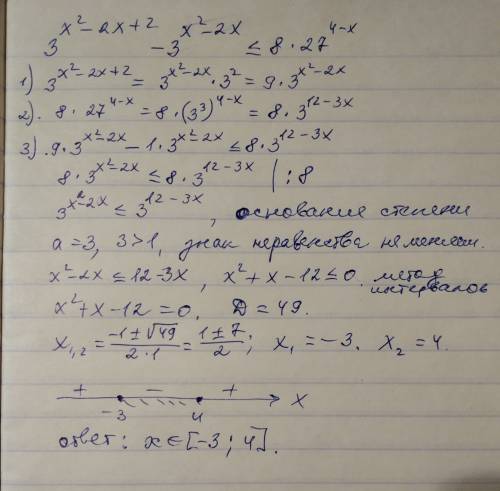 3^{x²-2x+2} - 3^{x²-2x} ≤ 8·27^{4-x}
1) 3^{x²-2x+2} = 3^{x²-2x}·3² = 9·3^{x²-2x}
2). 8·27^{4-x} = 8·(3³)^{4-x} = 8·3^{12-3x}
3). 9·3^{x²-2x} - 1·3^{x²-2x} ≤ 8·3^{12-3x}
8·3^{x²-2x} ≤ 8·3^{12-3x} | :8
3^{x²-2x} ≤ 3^{12-3x}, основание степени
a=3, 3>1, знак неравенства не меняем.
x²-2x ≤ 12-3x, x²+x-12 ≤ 0. метод интервалов
x²+x-12=0. D=49.
x₁,₂ = (-1±√49)/(2·1) = (1±7)/2; x₁=-3. x₂=4.
+ - +
-3 4 x
ответ: x∈[-3; 4].